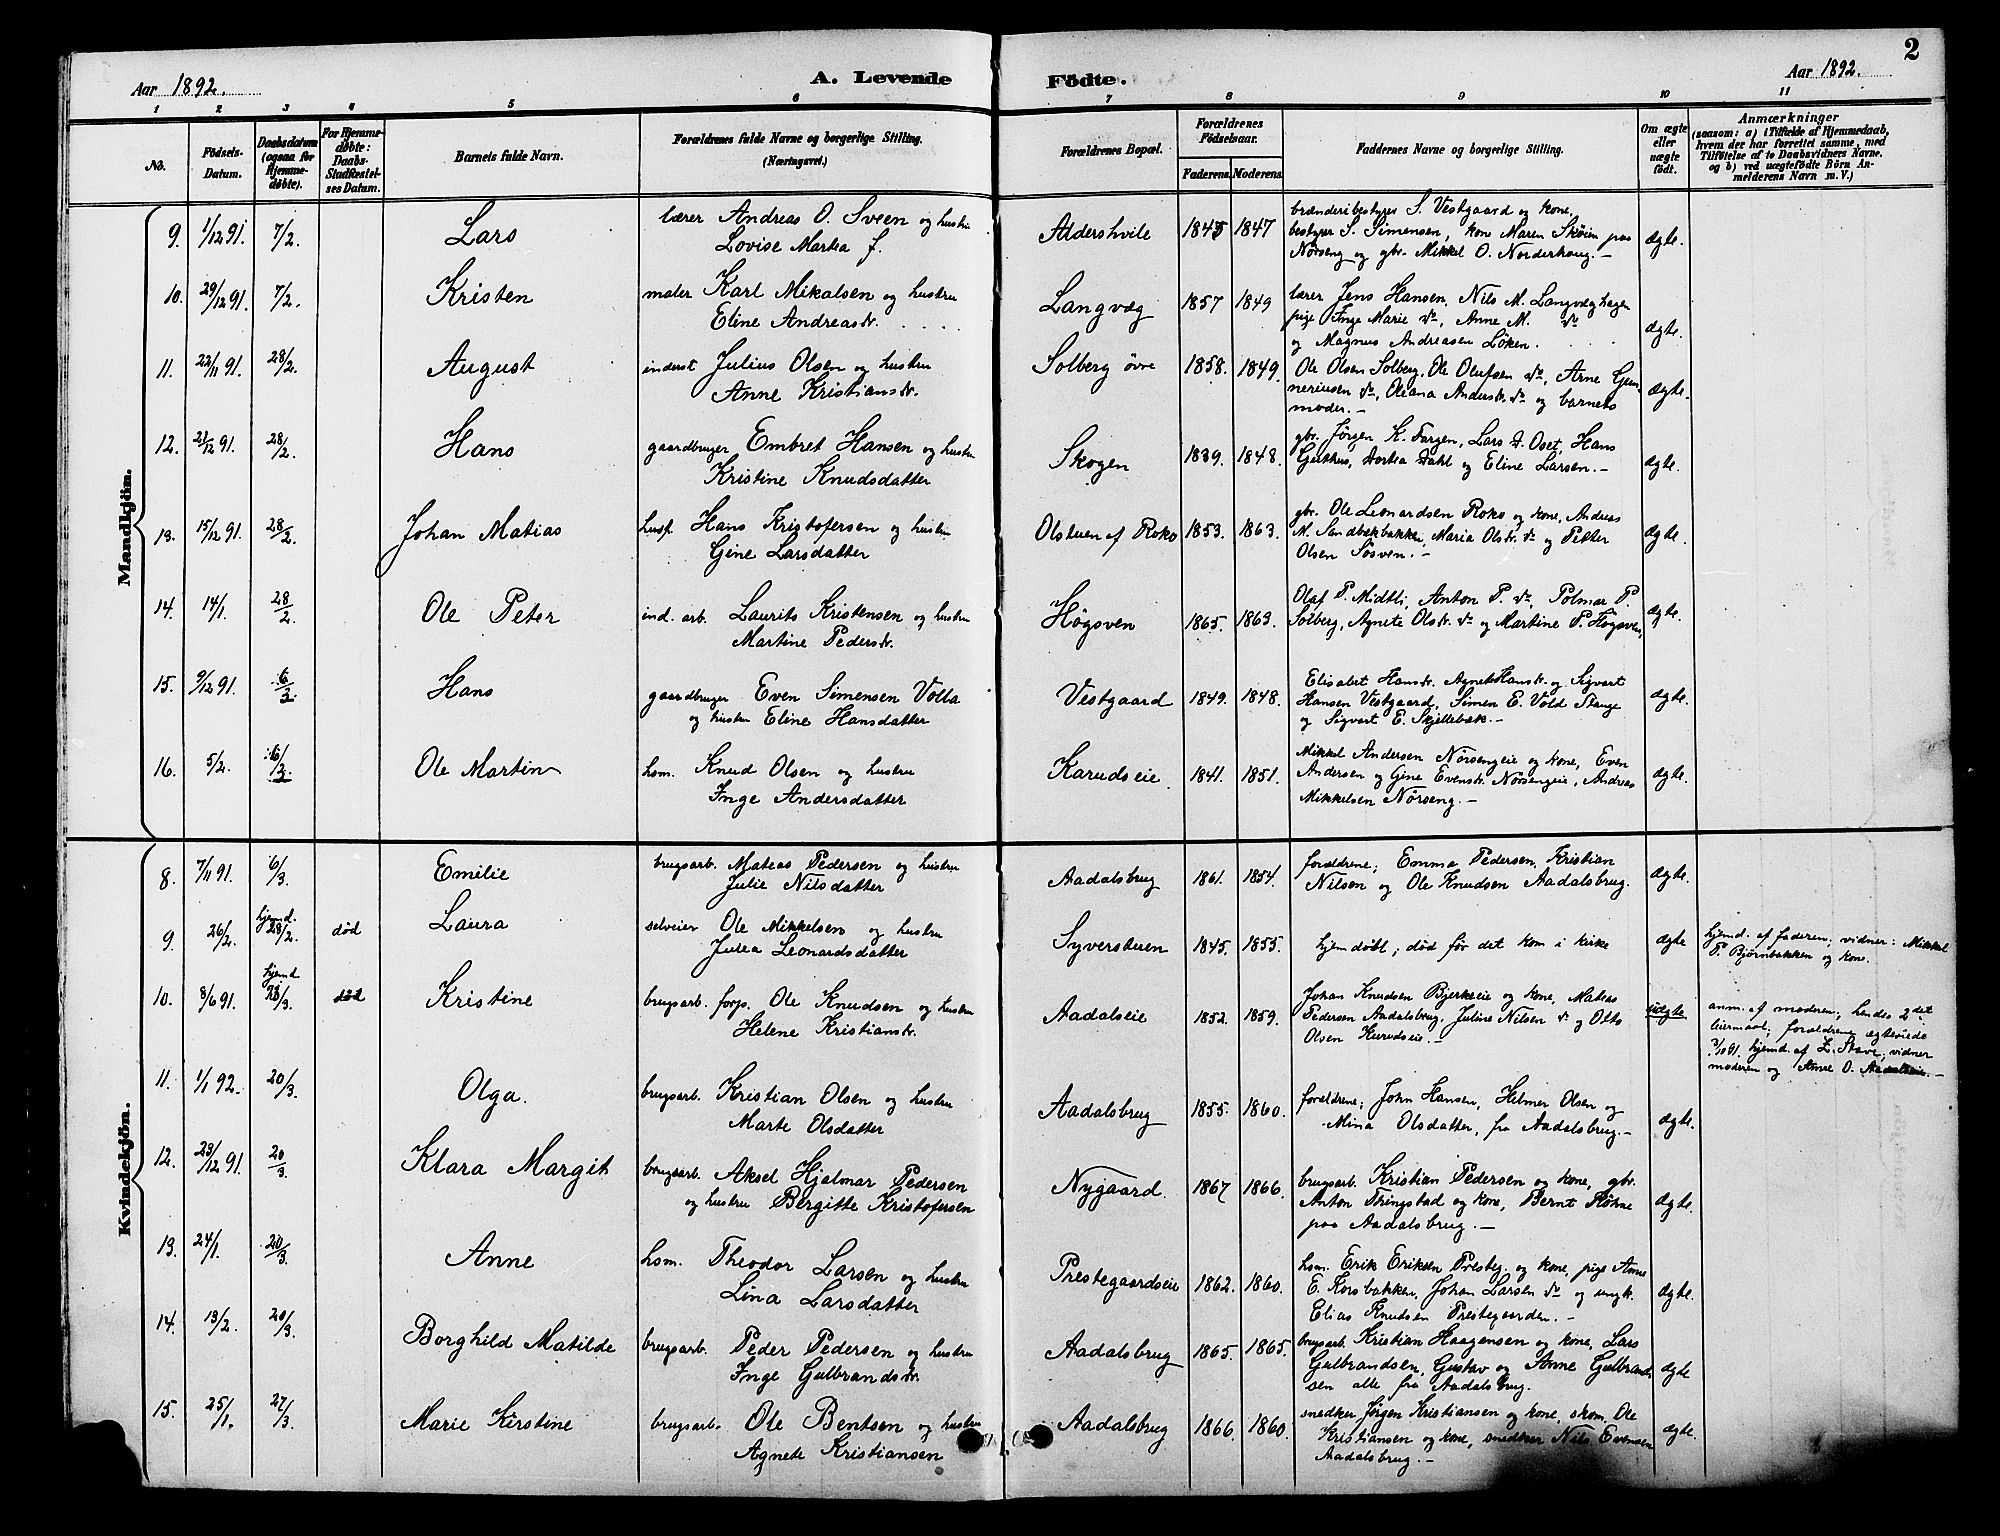 2
Aar 1892.
A. Levende Födte.
Aar 1892.
1 2 3 4 5 6 7 8 9 10 11
No. Fødsels-Datum. Daabsdatum (ogsaa for Hjemmedøbte). For Hjemmedøbte: Daabs-Stadfæstelses Datum. Barnets fulde Navn. Forældrenes fulde Navne og borgerlige Stilling. (Næringsvei.) Forældrenes Bopæl. Forældrenes Fødselsaar. Faderens. Moderens. Faddernes Navne og borgerlige Stilling. Om ægte eller uægte født. Anmærkninger (saasom: a) i Tilfælde af Hjemmedaab, hvem der har forrettet samme, med Tilføielse af to Daabsvidners Navne, og b) ved uægtefødte Börn Anmelderens Navn m. V.)
Mandkjön.
9. 1/12 91. 7/2. Lars lærer Andreas O. Sveen og hustru Aldershvile 1845 1847 brænderibestyrer S. Vestgaard og kone, ægte.
Lovise Martea f. bestyrer S. Simensen, kone Maren Skøien paa
Nørseng og gbr. Mikkel O. Norderhaug.-
10. 29/12 91. 7/2. Kristen maler Karl Mikalsen og hustru Langvæg 1857 1849 lærer Jens Hansen, Nils M. Langvæghagen ægte.
Eline Andreasdr. pige Inge Marie do, Anne M. do
og Magnus Andreasen Løken.
11. 22/11 91. 28/2. August inderst Julius Olsen og hustru Solberg øvre 1858. 1849. Ole Olsen Solberg, Ole Olufsen do, Arne Gun- ægte.
Anne Kristiansdr. neriusen do, Oleana Andersdr. do og barnets
moder.-
12. 21/12 91. 28/2. Hans gaardbruger Embret Hansen og hustru Skogen 1839. 1848. gbr. Jørgen K. Fargen, Lars Oset, Hans ægte.
Kristine Knudsdatter Guthus, Dortea Dahl og Eline Larsen.-
13. 15/12 91. 28/2. Johan Matias husf. Hans Kristofersen og hustru Olstuen af Roko 1853. 1863. gbr. Ole Leonardsen Roko og kone, Andreas ægte.
Gine Larsdatter M. Sandbækbakken, Maria Olsdr. do og Petter
Olsen Søsven.-
14. 14/1. 28/2. Ole Peter ind. arb. Laurits Kristensen og hustru Høgsven 1865. 1863. Olaf P. Midtli, Anton P. do, Polmar P. ægte.
Martine Pedersdr. Solberg, Agnete Olsdr. do og Martine P. Høgsven,
15. 9/12 91. 6/3. Hans gaardbruger Even Simensen Volla Vestgaard 1849. 1848. Elisabet Hansdr. Agnete Hansdr. og Sigvart ægte.
og hustru Eline Hansdatter Hansen Vestgaard, Simen E. Vold Stange
og Sigvart E. Skjellebæk.-
16. 5/2. 6/3. Ole Martin hsm. Knud Olsen og hustru Karudseie 1841. 1851. Mikkel Andersen Nörsengeie og kone, Even ægte.
Inge Andersdatter Andersen og Gine Evensdr. Norsengeie, Andreas
Mikkelsen Nörseng.-
Kvindekjön.
8. 7/11 91. 6/3. Emilie brugsarb. Mateas Pedersen og hustru Aadalsbrug 1861. 1854. forældrene; Emma Pedersen, Kristian ægte.
Julie Nilsdatter Nilsen og Ole Knudsen Aadalsbrug.
9. 26/2. hjemd. 28/2. død Laura selveier Ole Mikkelsen og hustru Syverstuen 1845. 1855. hjemdøbt; død før det kom i kirke ægte hjemd. af faderen; vidner: Mikkel
Julia Leonardsdatter P. Bjørnbakken og kone.
10. 8/6 91. hjemd 28/3. død Kristine brugsarb. forp. Ole Knudsen og hustru Aadalseie 1852. 1859. Johan Knudsen Bjerkeeie og kone, Mateas uægte anm. af moderen; hendes 2det
Helene Kristiansdr. Pedersen Aadalsbrug, Juline Nilsen do og Otto leiermaal; forældrene ægteviede
Olsen Kurudseie.- 7/10 91. hjemd. af L. Stave; vidner
moderen og Anne O. Aadalseie.-
11. 1/1 92. 20/3. Olga. brugsarb. Kristian Olsen og hustru Aadalsbrug 1855. 1860. forældrene; John Hansen, Helmer Olsen og ægte.
Marte Olsdatter Mina Olsdatter, fra Aadalsbrug.-
12. 23/12 91. 20/3. Klara Margit brugsarb. Aksel Hjalmar Pedersen Nygaard. 1867 1866. brugsarb. Kristian Pedersen og kone, gbr. ægte.
og hustru Bergitte Kristofersen Anton Thingstad og kone, Bernt Höhne
paa Aadalsbrug.-
13. 24/1. 20/3. Anne hsm. Theodor Larsen og hustru Prestegaardseie 1862. 1860. hsm. Erik Eriksen Presteg. og kone, pige Anne ægte.
Lina Larsdatter E. Korsbakken, Johan Larsen do og ungk.
Elias Knudsen Prestegaarden.-
14. 13/2. 20/3. Borghild Matilde brugsarb. Peder Pedersen og hustru Aadalsbrug 1865. 1865. brugsarb. Kristian Haagensen og kone, Lars ægte
Inge Gulbrandsdr. Gulbrandsen, Gustav og Anne Gulbrand-
sen alle fra Aadalsbrug.
15. 25/1. 27/3. Marie Kirstine brugsarb. Ole Bentsen og hustru Aadalsbrug 1866 1860. snedker Jørgen Kristiansen og kone, skom. Ole ægte.
Agnete Kristiansen Kristiansen og kone, snedker Nils Evensen
Aadalsbrug.-